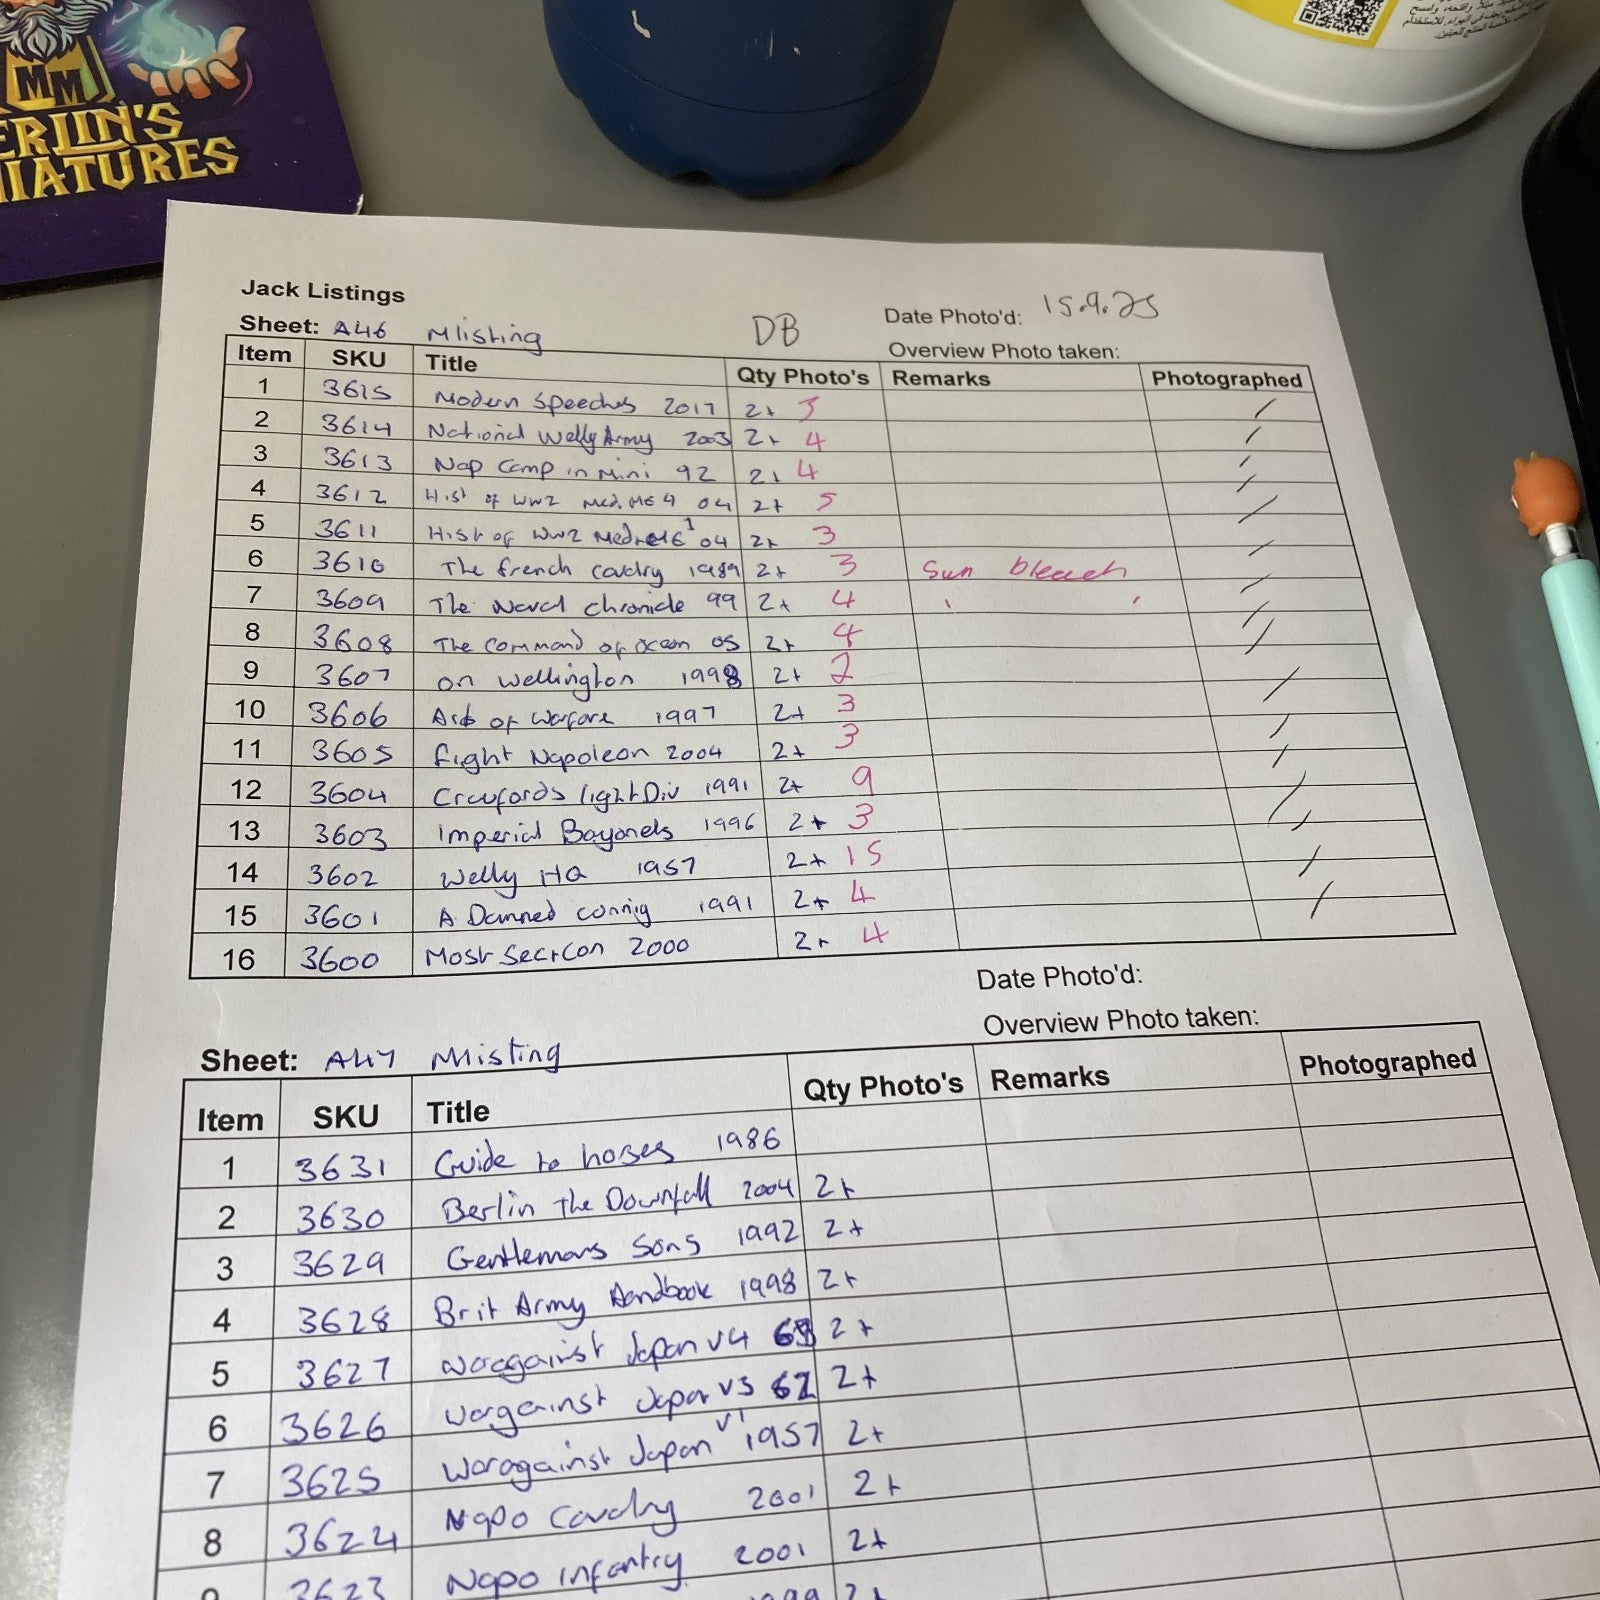 MM
ERLIN'S
IATURES
Jack Listings
Date Photo'd: 15.9.25
Sheet: A46 Mlisting DB
Overview Photo taken:
Item SKU Title Qty Photo's Remarks Photographed
1 3615 Modern Speeches 2017 2+ 3 /
2 3614 National Welly Army 2003 2+ 4 /
3 3613 Nap Camp in Mini 92 2+ 4 /
4 3612 Hist of WW2 Med.ME 4 04 2+ 5 /
5 3611 Hist of WW2 Med 1 04 2+ 3 /
6 3610 The french cavalry 1989 2+ 3 Sun bleach /
7 3609 The Naval chronicle 99 2+ 4 ' ' /
8 3608 The command of ocean 05 2+ 4 /
9 3607 on wellington 1998 2+ 2 /
10 3606 of warfare 1997 2+ 3 /
11 3605 fight Napoleon 2004 2+ 3 /
12 3604 Craufords light Div 1991 2+ 9 /
13 3603 imperial Bayonets 1996 2+ 3 /
14 3602 Welly HQ 1957 2+ 15 /
15 3601 A Damned 1991 2+ 4 /
16 3600 Most Secr Con 2000 2+ 4
Date Photo'd:
Overview Photo taken:
Sheet: A47 Mlisting
Item SKU Title Qty Photo's Remarks Photographed
1 3631 Guide to horses 1986
2 3630 Berlin the Downfall 2004 2+
3 3629 Gentlemans Sons 1992 2+
4 3628 Brit Army Handbook 1998 2+
5 3627 waragainst Japan V4 2+
6 3626 waragainst Japan V3 62 2+
7 3625 Waragainst Japan V1 1957 2+
8 3624 Napo Cavalry 2001 2+
3623 Napo infantry 2001 2+
2+